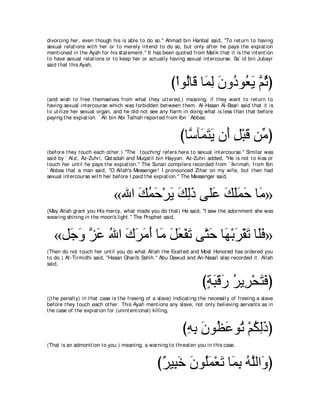 divorcing her, even though his is able to do so." Ahmad bin Hanbal said, "To return to having
sexual relations with her or to merely intend to do so, but only after he pays the expiation
mentioned in the Ayah for his statement." It has been quoted from Malik that it is the intention
to have sexual relations or to keep her or actually having sexual intercourse. Sa`id bin Jubayr
said that this Ayah,
(ثُمَّ يَعُودُونَ لِمَا قَالُواْ)
(and wish to free themselves from what they uttered,) meaning, if they want to return to
having sexual intercourse which was forbidden between them. Al-Hasan Al-Basri said that it is
to utilize her sexual organ, and he did not see any harm in doing what is less than that before
paying the expiation. `Ali bin Abi Talhah reported from Ibn `Abbas:
(مِّن قَبْلِ أَن يَتَمَآسَّا)
(before they touch each other.) "The `touching' refers here to sexual intercourse." Similar was
said by `Ata', Az-Zuhri, Qatadah and Muqatil bin Hayyan. Az-Zuhri added, "He is not to kiss or
touch her until he pays the expiation." The Sunan compilers recorded from `Ikrimah, from Ibn
`Abbas that a man said, "O Allah's Messenger! I pronounced Zihar on my wife, but then had
sexual intercourse with her before I paid the expiation." The Messenger said,
«مَا حَمَلَكَ عَلَى ذَلِكَ يَرْحَمُكَ الله»
(May Allah grant you His mercy, what made you do that) He said, "I saw the adornment she was
wearing shining in the moon's light." The Prophet said,
«فَلَا تَقْرَبْهَا حَتَّى تَفْعَلَ مَا أَمَرَكَ اللهُ عَزَّ وَجَل»
(Then do not touch her until you do what Allah the Exalted and Most Honored has ordered you
to do.) At-Tirmidhi said, "Hasan Gharib Sahih." Abu Dawud and An-Nasa'i also recorded it. Allah
said,
(فَتَحْرِيرُ رَقَبَةٍ)
((the penalty) in that case is the freeing of a slave) indicating the necessity of freeing a slave
before they touch each other. This Ayah mentions any slave, not only believing servants as in
the case of the expiation for (unintentional) killing,
(ذَلِكُمْ تُوعَظُونَ بِهِ)
(That is an admonition to you.) meaning, a warning to threaten you in this case.
(وَاللَّهُ بِمَا تَعْمَلُونَ خَبِيرٌ)